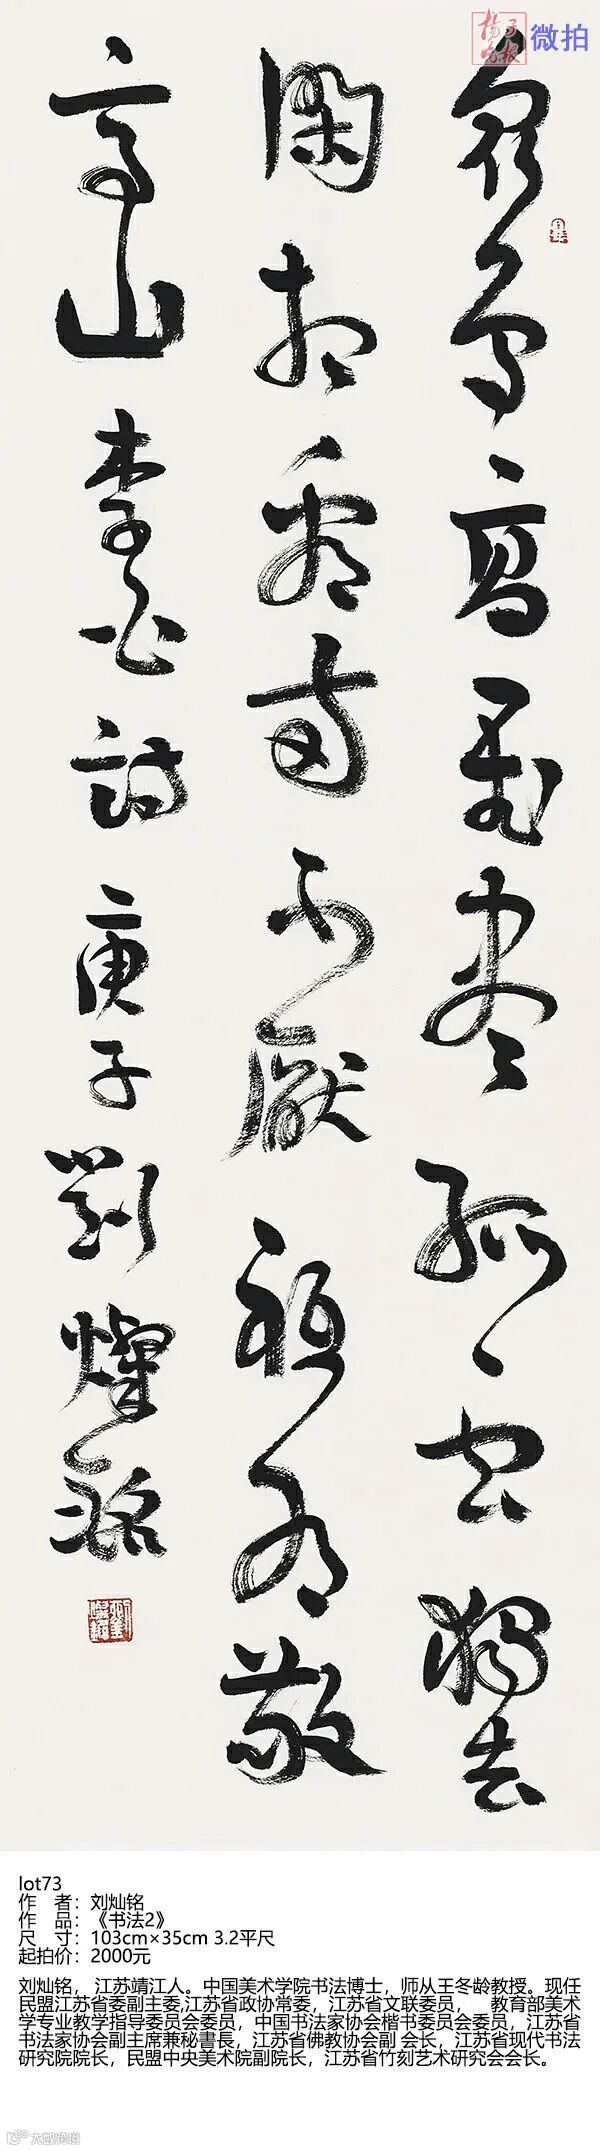 揚子晚报 微拍
眾鳥高飛盡孤雲獨去
閑相看兩不厭祗有敬
亭山 李白詩 庚子 劉燦銘
lot73
作 者：刘灿铭
作 品：《书法2》
尺 寸：103cm×35cm 3.2平尺
起拍价：2000元
刘灿铭，江苏靖江人。中国美术学院书法博士，师从王冬龄教授。现任
民盟江苏省委副主委,江苏省政协常委，江苏省文联委员， 教育部美术
学专业教学指导委员会委员，中国书法家协会楷书委员会委员，江苏省
书法家协会副主席兼秘書長，江苏省佛教协会副 会长，江苏省现代书法
研究院院长，民盟中央美术院副院长，江苏省竹刻艺术研究会会长。
大数跨境